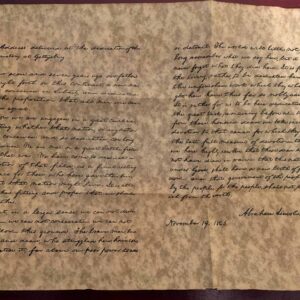 Address delivered at the dedication of the
Cemetery at Gettysburg
score and seven years ago our fathers
brought forth on this continent, a new na-
conceived in Liberty, and dedicated
the proposition that all men are cre-
Now we are engaged in a great civil
testing whether that nation, or any nation
We are met on a great battle field
that war. We have come to dedicate a
of that field, as a final resting
place for those who here gave their lives
that that nation might live. It is alto-
fitting and proper that we should
this.
But, in a larger sense, we can not dedi-
we can not consecrate we can not
hallow this ground. The brave men, liv-
and dead, who struggled here, have con-
it, far above our poor power to add
or detract. The world will little note, nor
long remember what we say here, but it can
never forget what they did here. It is for us
the living, rather, to be dedicated here to
the unfinished work which they who
here have thus far so nobly
It is rather for us to be here dedicated to
the great task remaining before us that
from these honored dead we take increased
devotion to that cause for which they
the last full measure of devotion that
we here highly resolve that these dead shall
not have died in vain that this nation,
under God, shall have a new birth of
dom and that government of the people,
by the people, for the people, shall not per-
ish from the earth.
Abraham Lincoln
November 19, 1863.